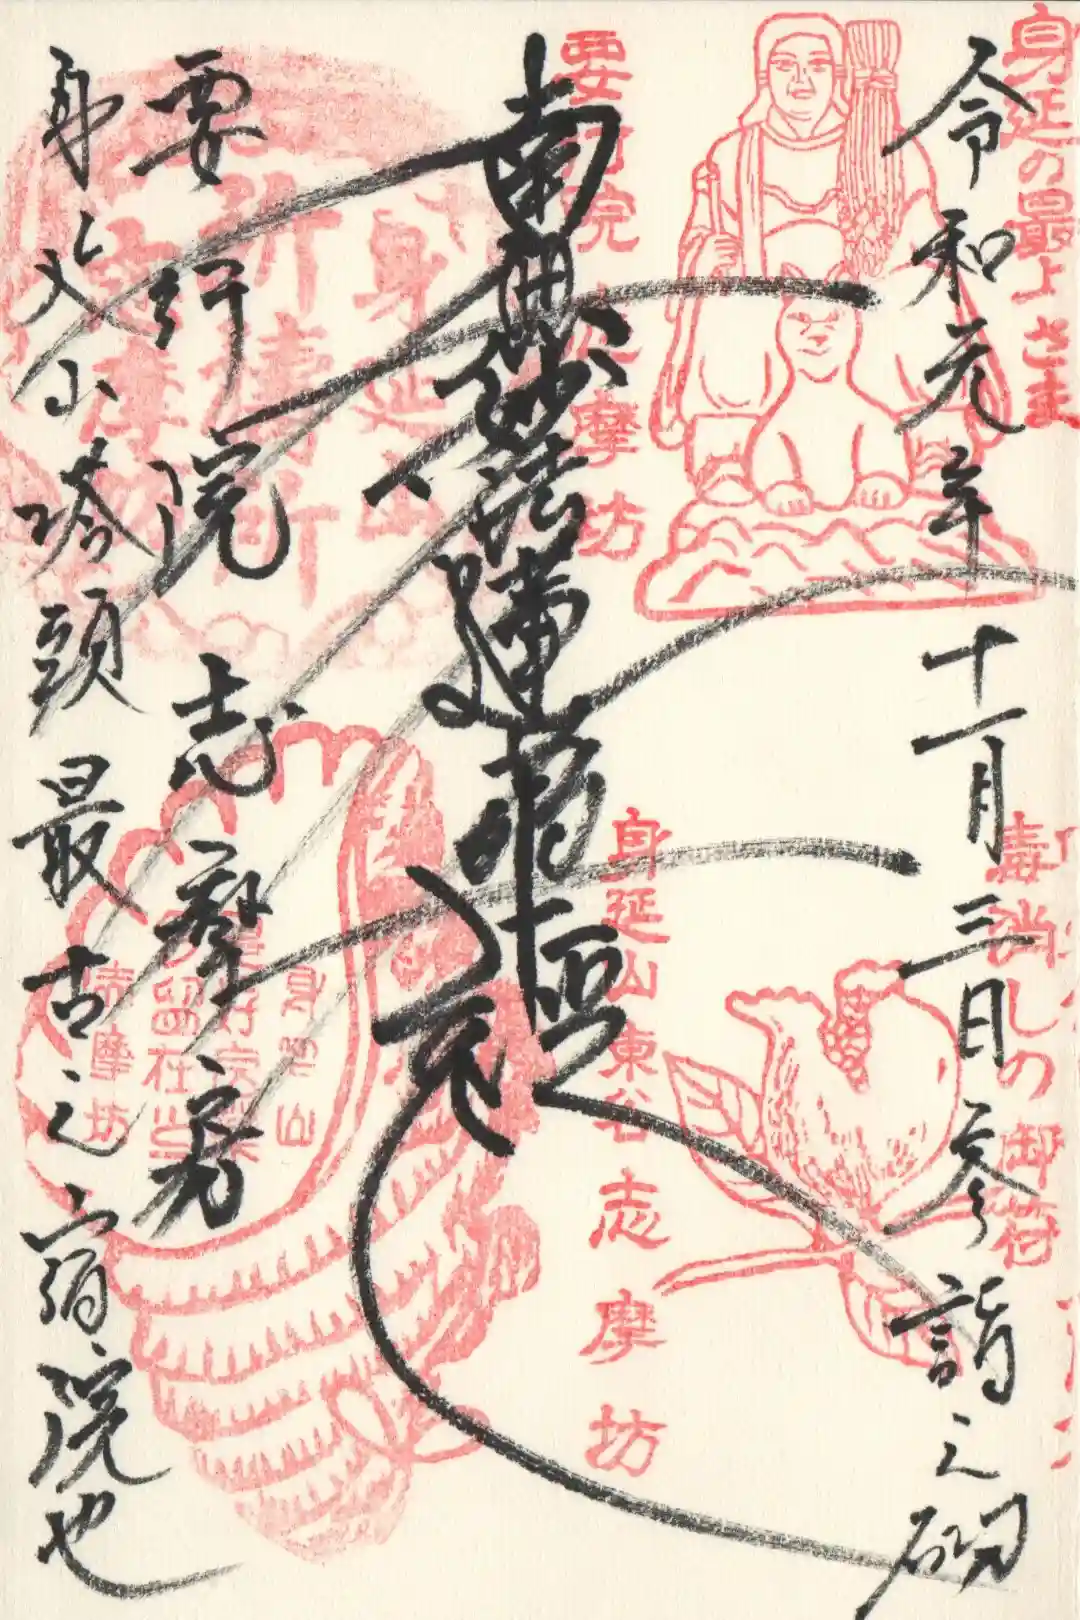 身延の最上さま
令和元年十一月三日参詣之砌
毒消しの御符
要行院
志摩坊
身延山東谷志摩坊
南無妙法蓮華経
要行院志摩房
身延山塔頭最古之宿院也
身延山
祈祷所
志摩坊